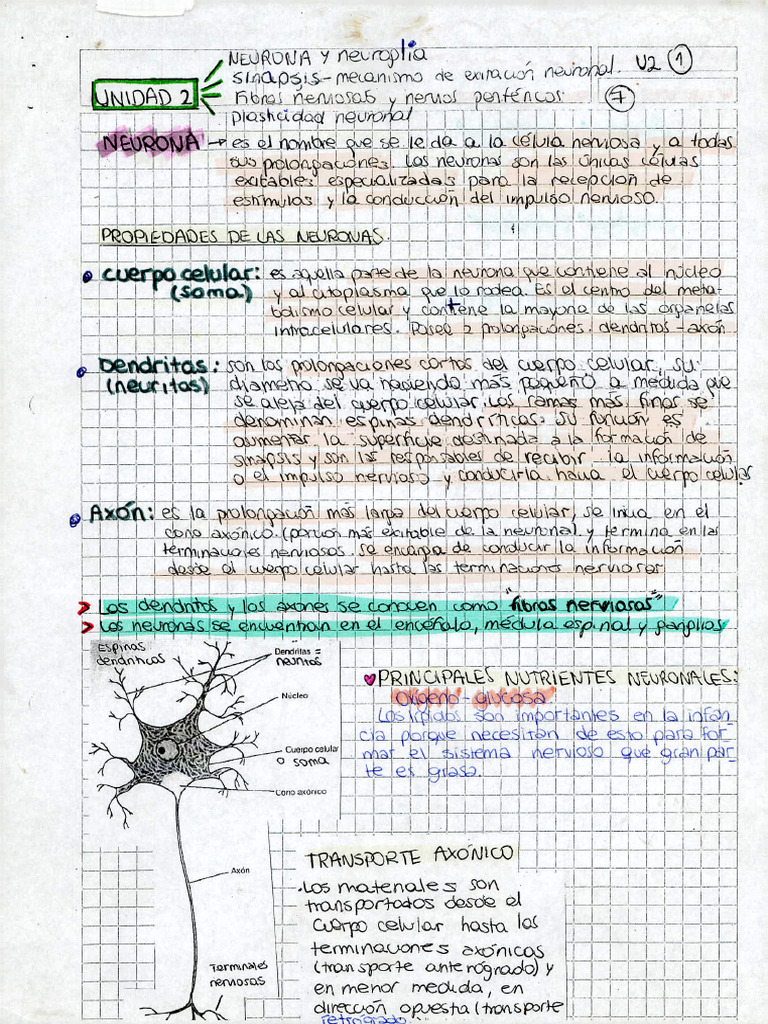 NEURONA y neuroglia
sinapsis - mecanismo de exitación neuronal.
U2 1
UNIDAD 2
Fibras nerviosas y nervios periféricos
7
plasticidad neuronal
NEURONA → es el nombre que se le da a la célula nerviosa y a todas
sus prolongaciones. Las neuronas son las únicas células
exitables especializadas para la recepción de
estimulos y la conducción del impulso nervioso.
PROPIEDADES DE LAS NEURONAS
• cuerpo celular: es aquella parte de la neurona que contiene al núcleo
(soma) y al citoplasma que lo rodea. Es el centro del meta-
bolismo celular y contiene la mayoria de las organelas
intracelulares. Posee 2 prolongaciones. dendritas - axón
• Dendritas: son las prolongaciones cortas del cuerpo celular, su
(neuritas) diametro se va haciendo más pequeño a medida que
se aleja del cuerpo celular. Las ramas más finas se
denominan espinas dendríticas. su función es
aumentar la superficie destinada a la formación de
sinapsis y son las responsables de recibir la información
o el impulso nervioso y conducirla hacia el cuerpo celular
• Axón: es la prolongación más larga del cuerpo celular, se inicia en el
cono axónico (porción más exitable de la neurona) y termina en las
terminaciones nerviosas. se encarga de conducir la información
desde el cuerpo celular hasta las terminaciones nerviosas
> Las dendritas y los axones se conocen como "fibras nerviosas"
> Las neuronas se encuentran en el encéfalo, médula espinal y ganglios
Espinas
dendríticas
Dendritas =
neuritas
Núcleo
Cuerpo celular
o soma
Cono axónico
Axón
Terminales
nerviosas
PRINCIPALES NUTRIENTES NEURONALES:
oxigeno - glucosa
Los lípidos son importantes en la infan_
cia porque necesitan de esto para for_
mar el sistema nervioso que gran par_
te es grasa.
TRANSPORTE AXÓNICO
• Los materiales son
transportados desde el
cuerpo celular hasta las
terminaciones axónicas
(transporte anterógrado) y
en menor medida, en
dirección opuesta (transporte
retrogrado.